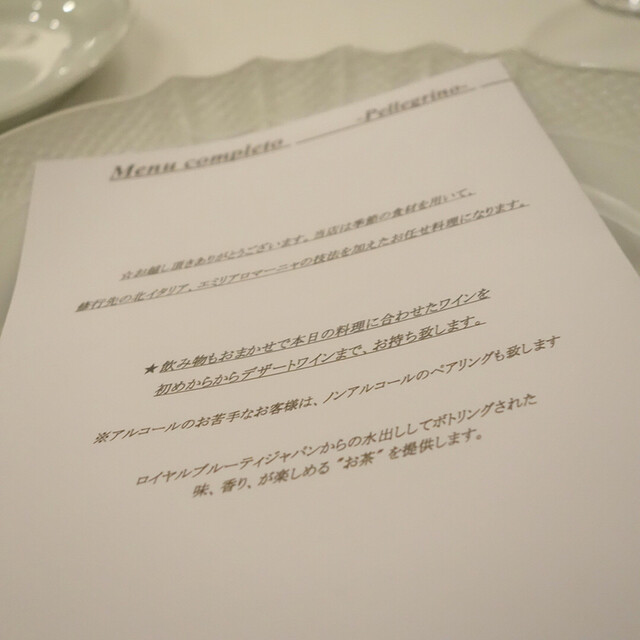 Menu completo -Pellegrino-
☆お越し頂きありがとうございます。当店は季節の食材を用いて、
修行先の北イタリア、エミリアロマーニャの技法を加えたお任せ料理になります。
★飲み物もおまかせで本日の料理に合わせたワインを
初めからからデザートワインまで、お持ち致します。
※アルコールのお苦手なお客様は、ノンアルコールのペアリングも致します
ロイヤルブルーティジャパンからの水出ししてボトリングされた
味、香り、が楽しめる“お茶”を提供します。